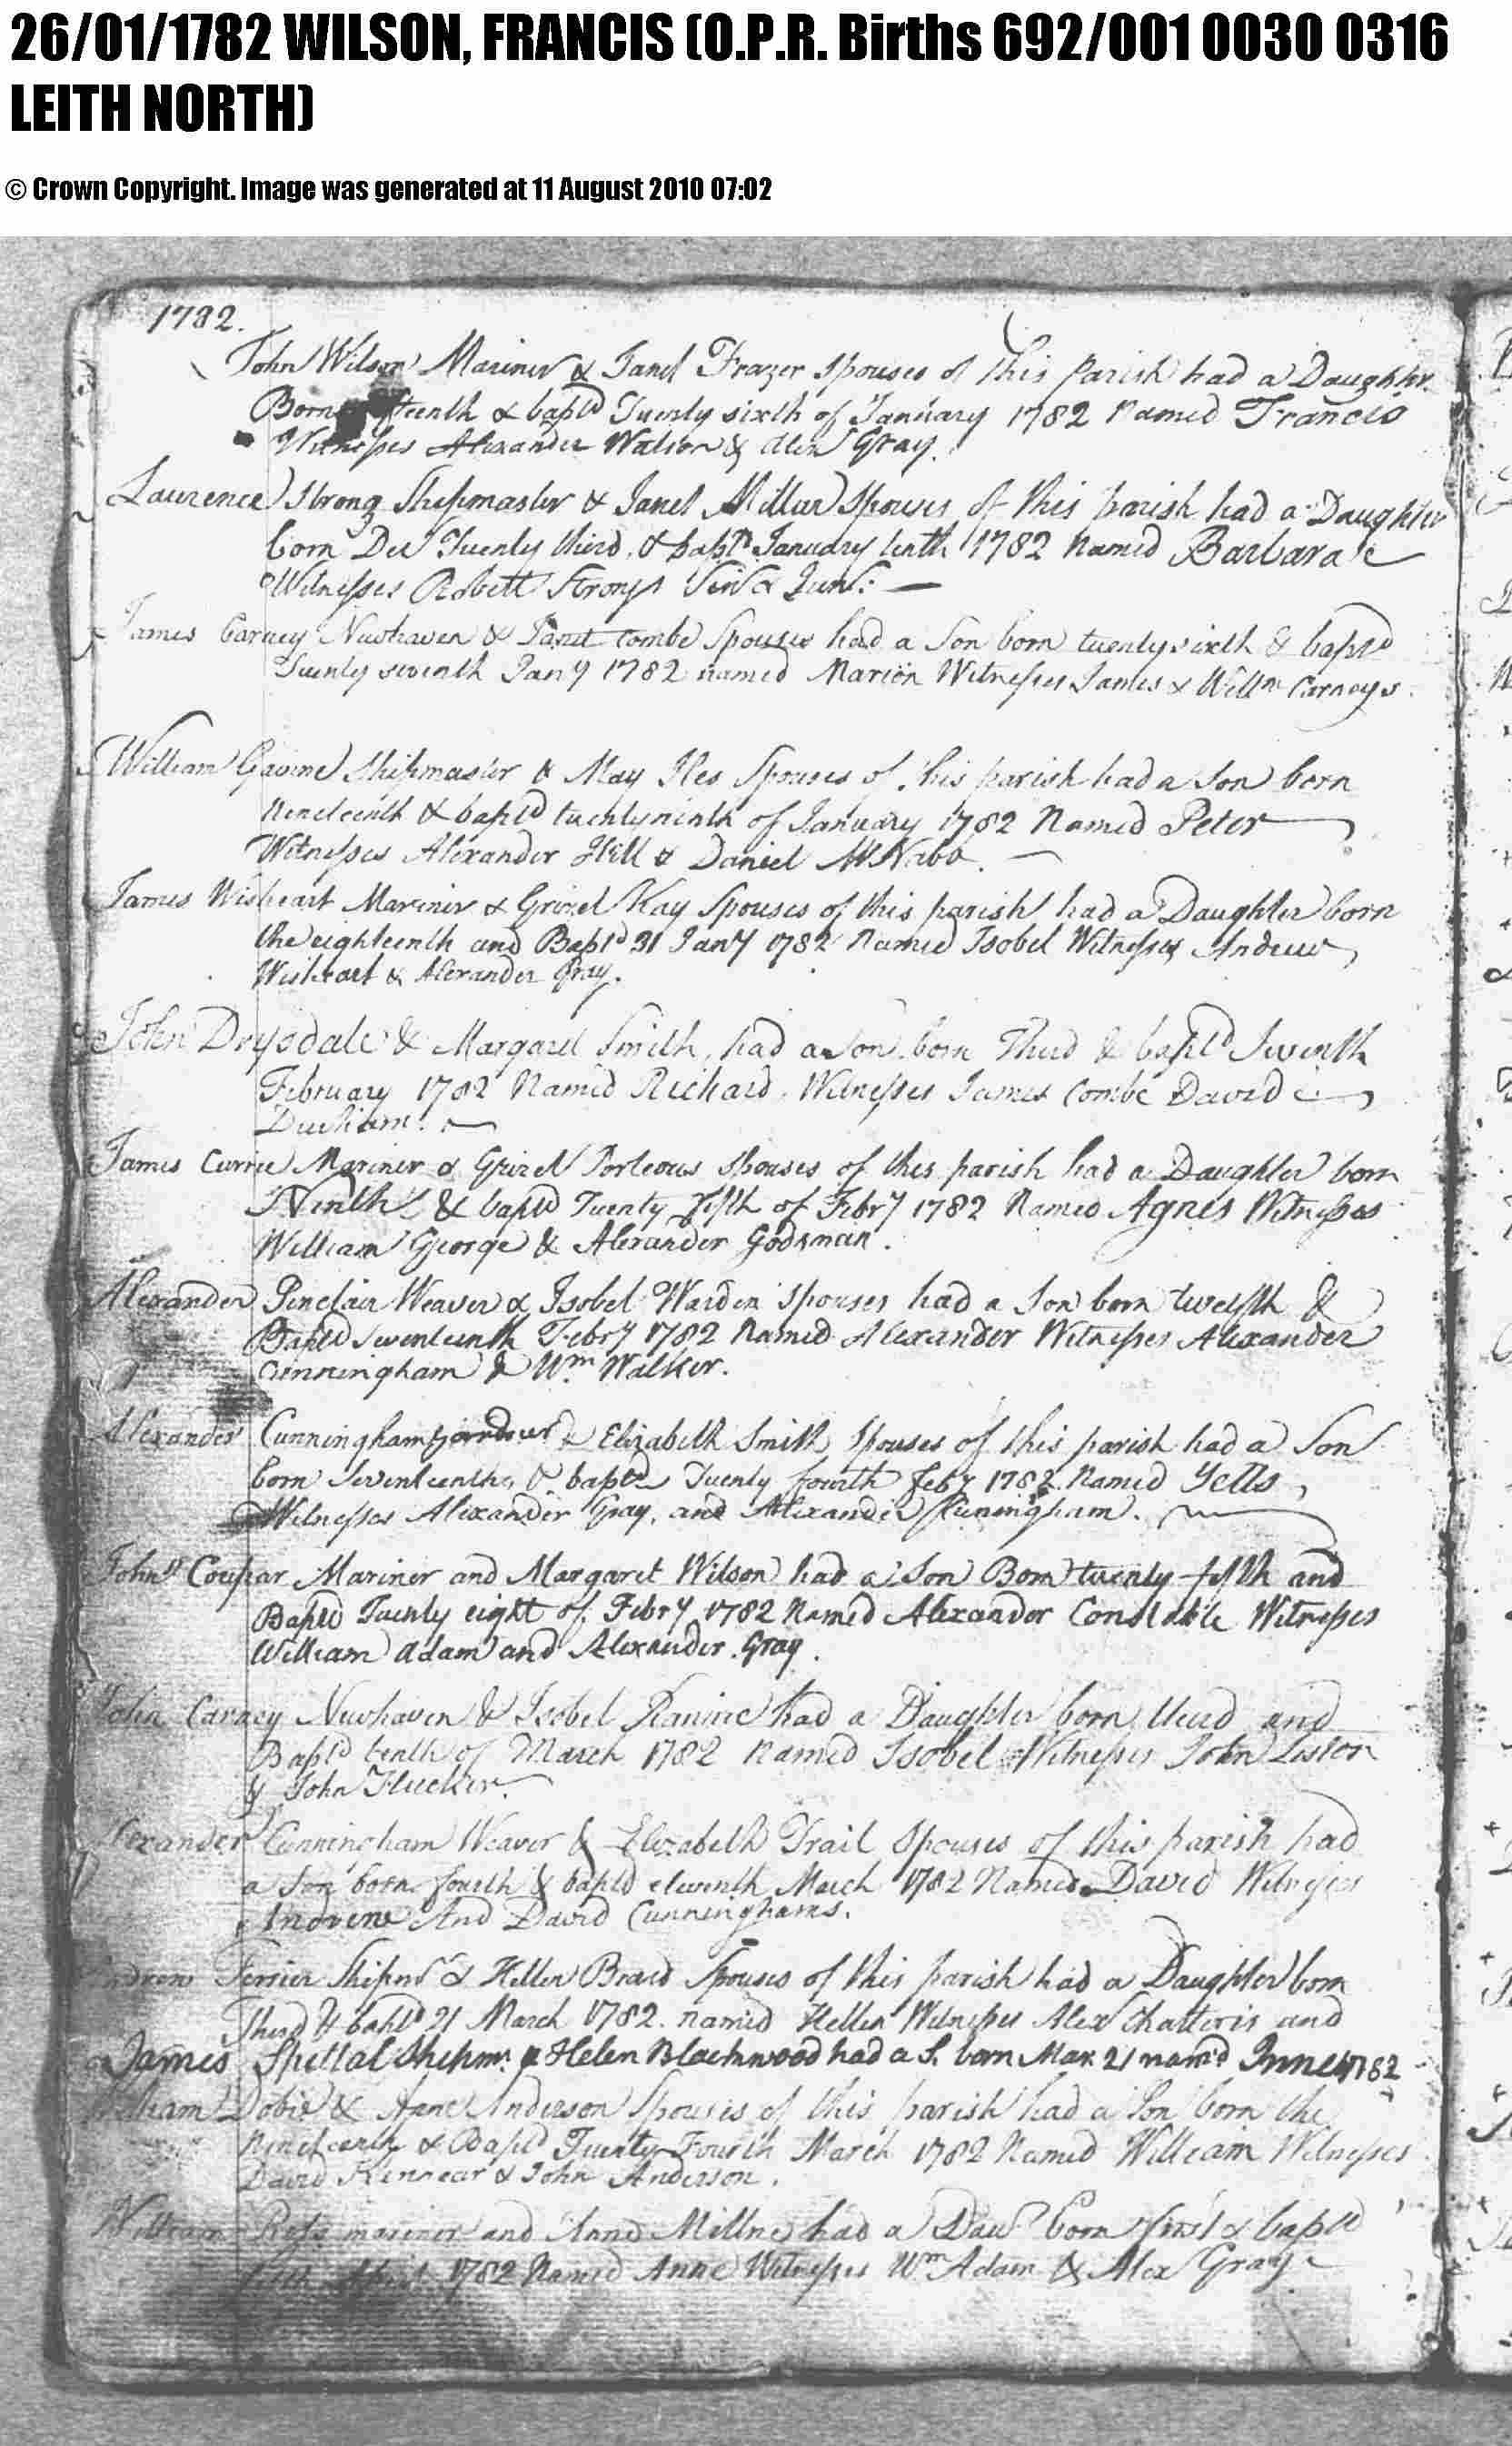 26/01/1782 WILSON, FRANCIS (O.P.R. Births 692/001 0030 0316
LEITH NORTH)
© Crown Copyright. Image was generated at 11 August 2010 07:02
1782.
John Wilson Mariner & Janet Frazer Spouses of this Parish had a Daughter
Born & baptd Twenty sixth of January 1782 Named Francis
Witnesses Alexander Watson & Alexr Gray.
Laurence Strong Shipmaster & Janet Millar Spouses of this parish had a Daughter
born Decr Twenty third & baptd January tenth 1782 Named Barbara
Witnesses Robert Strongs Senr & Junr.
James Carney Newhaven & Janet Combe Spouses had a Son born twenty sixth & baptd
Twenty seventh Jany 1782 named Marion Witnesses James & Willm Carneys.
William Gavine Shipmaster & May Iles Spouses of this parish had a Son born
Nineteenth & baptd twenty ninth of January 1782 Named Peter
Witnesses Alexander Hill & Daniel McNabb.
James Wisheart Mariner & Grizel Kay Spouses of this parish had a Daughter born
the eighteenth and Baptd 31 Jany 1782 Named Isobel Witnesses Andrew
Wisheart & Alexander Gray.
John Drysdale & Margaret Smith, had a Son born Third & baptd Seventh
February 1782 Named Richard. Witnesses James Combe David
Durham.
James Currie Mariner & Grizel Porteous Spouses of this parish had a Daughter born
Ninth & baptd Twenty fifth of Febry 1782 Named Agnes Witnesses
William George & Alexander Godsman.
Alexander Sinclair Weaver & Isobel Warden Spouses had a Son born twelfth &
Baptd Seventeenth Febry 1782 Named Alexander Witnesses Alexander
Cunningham & Wm Walker.
Alexander Cunningham & Elizabeth Smith Spouses of this parish had a Son
born Seventeenth & baptd Twenty fourth Feby 1782 Named Yells
Witnesses Alexander Gray, and Alexander Cuningham.
John Coupar Mariner and Margaret Wilson had a Son Born twenty fifth and
Baptd Twenty eight of Febry 1782 Named Alexander Constable Witnesses
William Adam and Alexander Gray.
John Carney Newhaven & Isobel had a Daughter born third and
Baptd tenth of March 1782 Named Isobel Witnesses John Liston
& John Flucker.
Alexander Cunningham Weaver & Elizabeth Trail Spouses of this parish had
a Son born fourth & baptd eleventh March 1782 Named David Witnesses
Andrew And David Cunninghams.
Andrew Ferrier Shipmr & Hellen Braid Spouses of this parish had a Daughter born
Third & baptd 21 March 1782. named Hellen Witnesses Alexr Chatteris and
James Spittal Shipmr. & Helen Blackwood had a S. born Mar. 21 nam'd 1782
William Dobie & Anne Anderson Spouses of this parish had a Son born the
Nineteenth & Baptd Twenty Fourth March 1782 Named William Witnesses
David Kinnear & John Anderson.
William Ross mariner and Anne Millne had a Daur born first & baptd
1782 Named Anne Witnesses Wm Adam & Alexr Gray